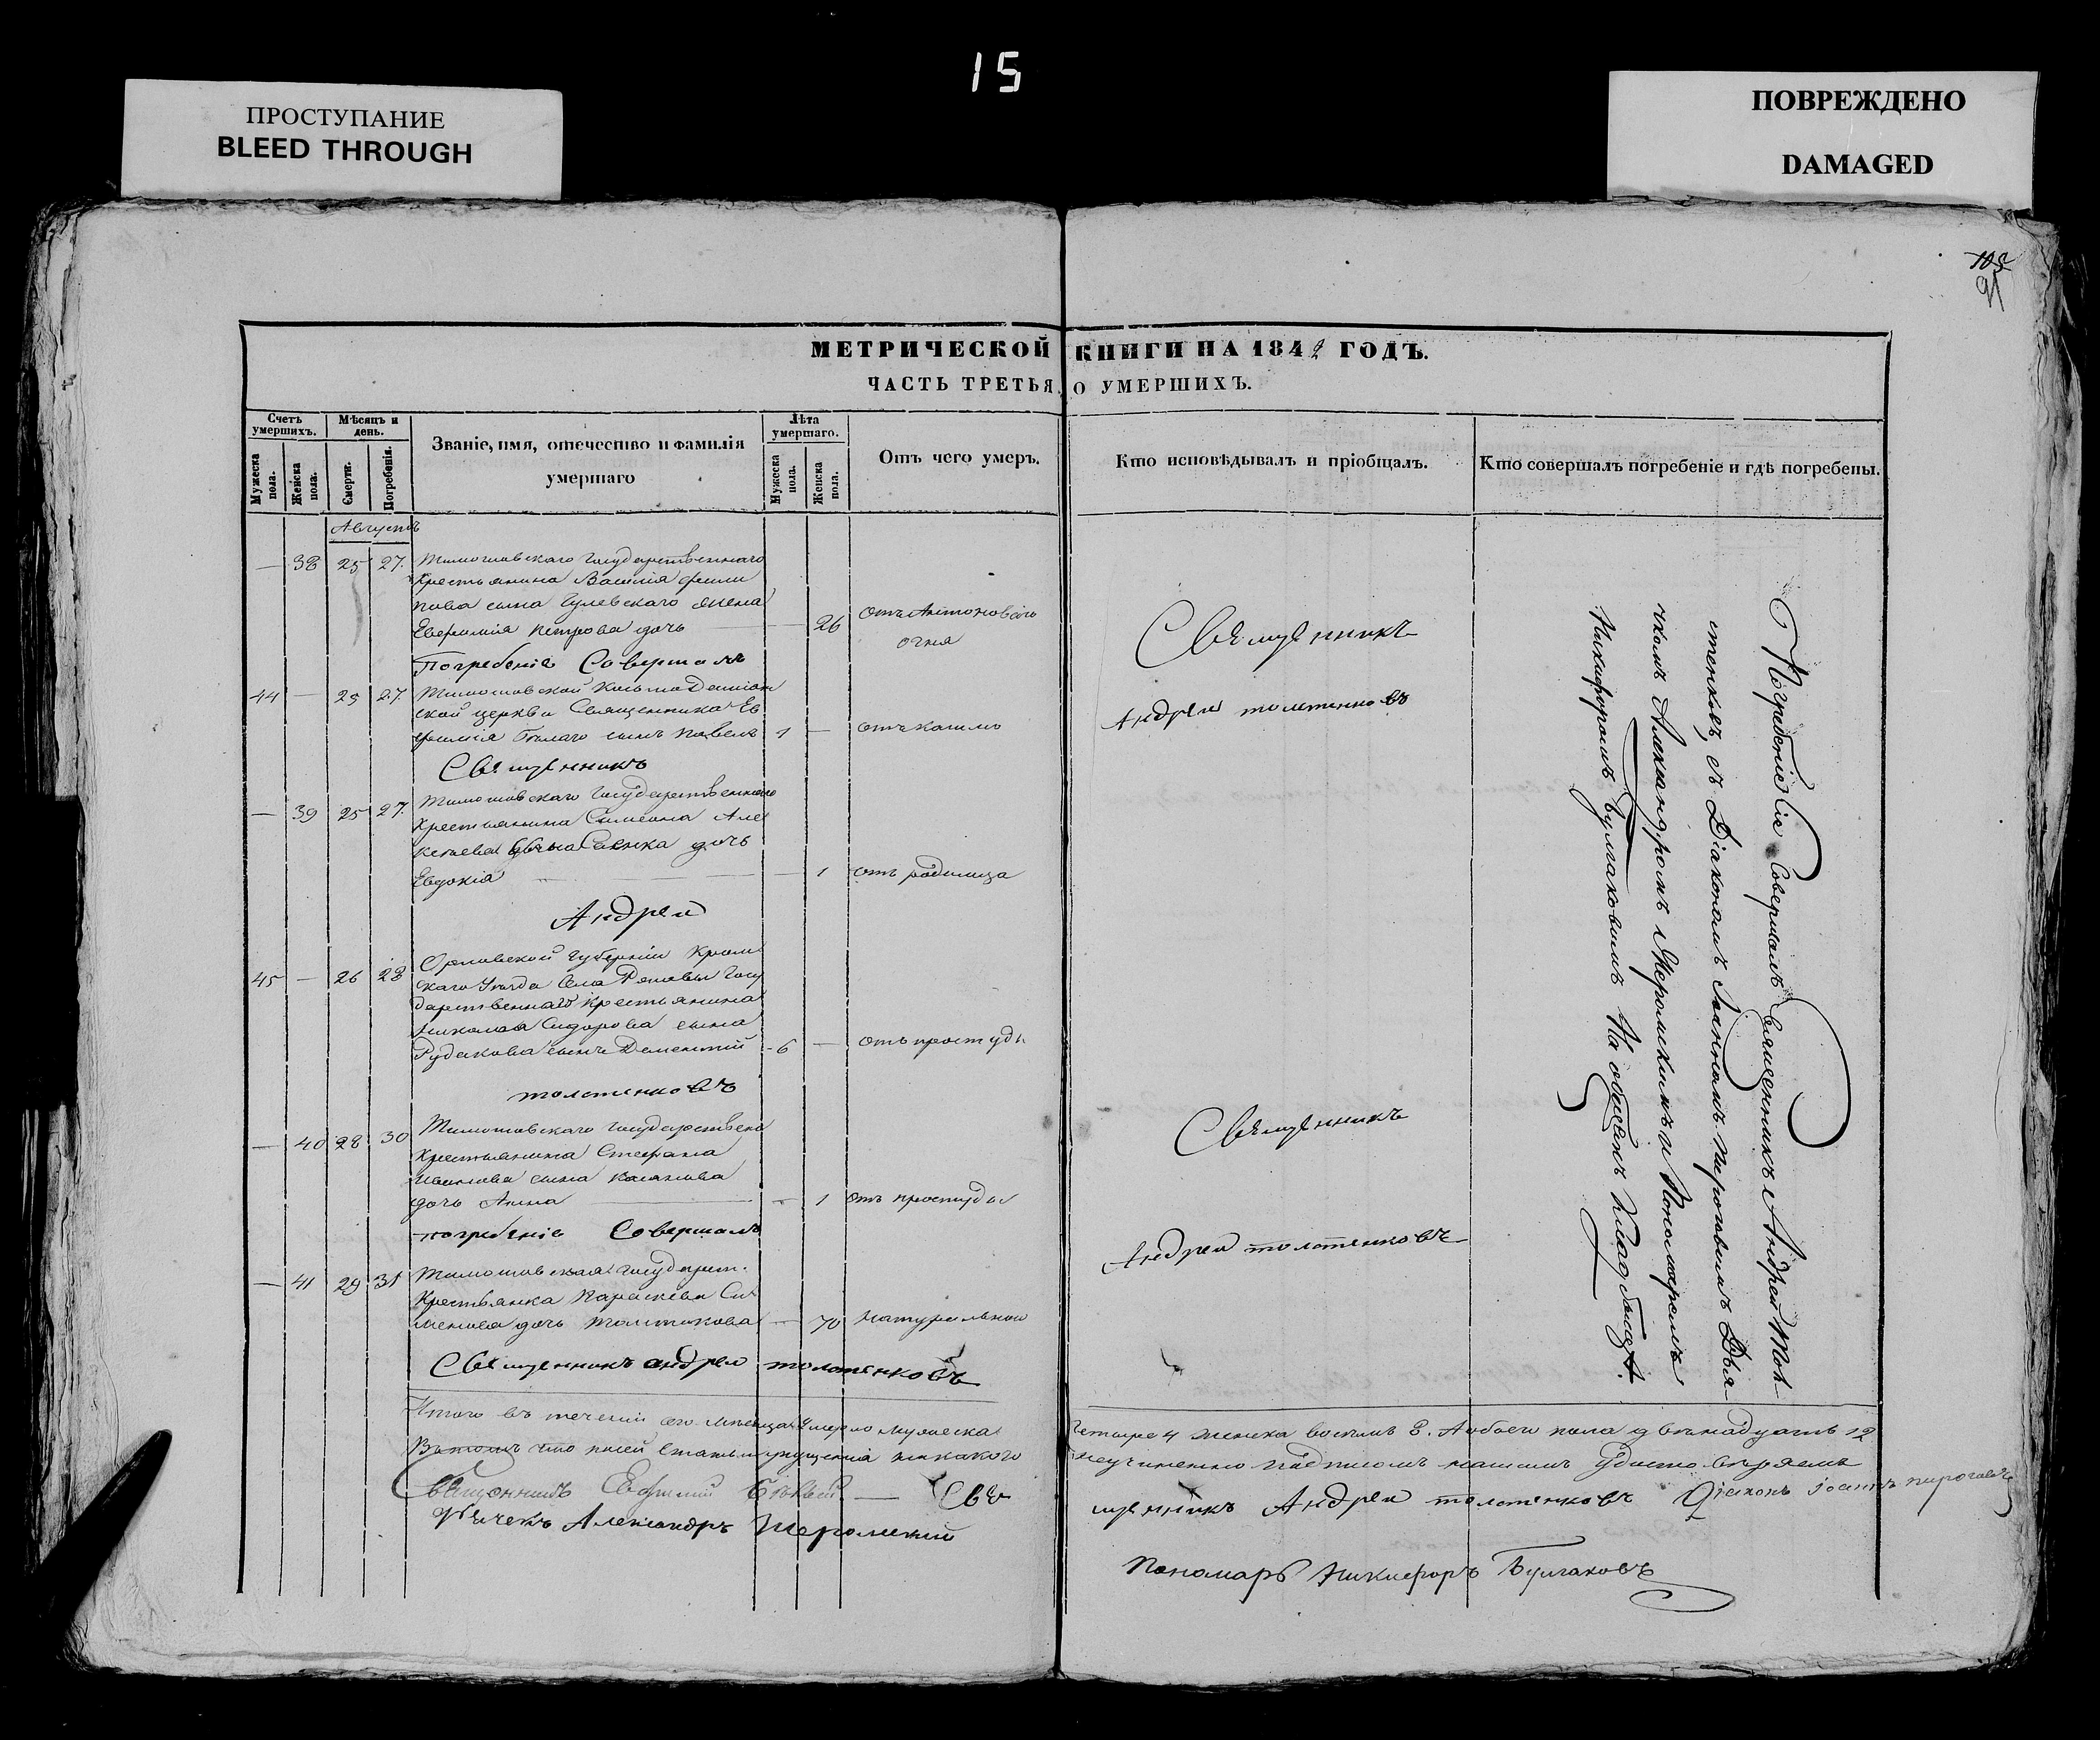 15
ПРОСТУПАНИЕ
BLEED THROUGH
ПОВРЕЖДЕНО
DAMAGED
105
МЕТРИЧЕСКОЙ КНИГИ НА 1842 ГОДЪ.
ЧАСТЬ ТРЕТЬЯ, О УМЕРШИХЪ.
Счетъ умершихъ.
Мужеска пола.
Женска пола.
Мѣсяцъ и день.
Смерти.
Погребенія.
Званіе, имя, отечество и фамилія
умершаго
Лѣта умершаго.
Мужеска пола.
Женска пола.
Отъ чего умеръ.
Кто исповѣдывалъ и пріобщалъ.
Кто совершалъ погребеніе и гдѣ погребены.
Августъ
— 38 25 27. Тимошовскаго Государственнаго
Крестьянина Василія Фили
пова сына Гулевскаго жена
Евфимія Петрова дочь — 26 отъ Антоноваго
огня
Погребеніе Совершалъ
44 — 25 27 Тимошовской Косьмо Деміан
ской церкви Священника Ев
фимія Бѣлаго сынъ Павелъ 1 — отъ кашлю
Священникъ
— 39 25 27. Тимошовскаго Государственнаго
Крестьянина Симеона Але
ксѣева сына дочь
Евдокія — 1 отъ родимца
Андрей
45 — 26 28 Орловской Губерніи Кром
скаго Уѣзда Села Госу
дарственнаго Крестьянина
Николая Сидорова сына
Рудакова сынъ Дементій 6 — отъ простуды
толстенковъ
— 40 28 30 Тимошовскаго Государствен
Крестьянина Стефана
Иванова сына
дочь Анна — 1 отъ простуды
погребеніе Совершалъ
— 41 29 31 Тимошовская Государст.
Крестьянка Параскева Си
менова дочь — 70 натуральною
Священникъ андрей толстенковъ
Священникъ
Андрей толстенковъ
Священникъ
Андрей толстенковъ
Погребеніе Сіе Совершалъ Священникъ Андрей Тол
стенковъ, съ Діакономъ Іоанномъ Пироговымъ Дья
чкомъ Александромъ Жеромскимъ и Пономаремъ
Никифоромъ Булгаковымъ На общемъ Кладбищѣ.
Итого въ теченіи сего мѣсяца Умерло мужеска четыре 4 женска восемь 8. А обоего пола двенадцать 12
Въ томъ что сей статьи упущенія никакого неучинено подписомъ нашимъ Удостовѣряемъ
Священникъ Евфимій Бѣлый — Священникъ Андрей толстенковъ Діаконъ Іоаннъ пироговъ
Дьячекъ Александръ Жеромский
Пономарь Никифоръ Булгаковъ